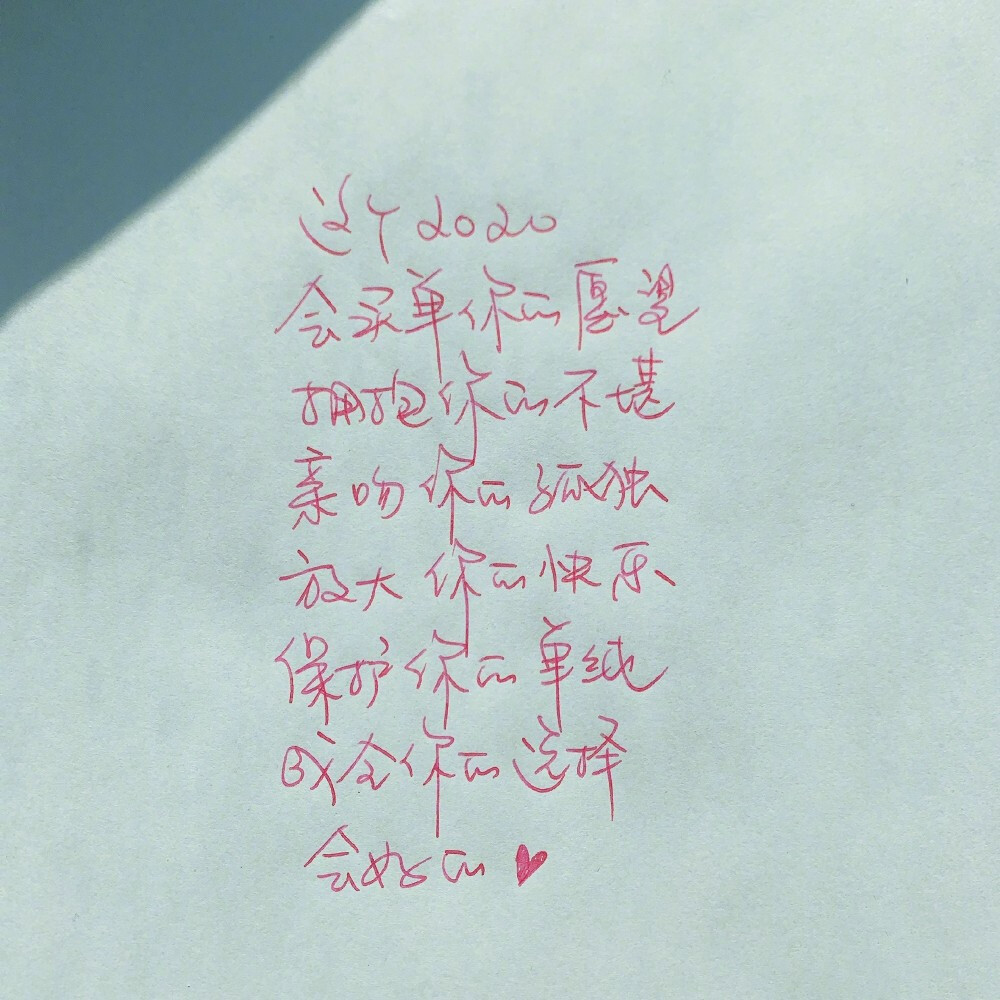 这个2020
会买单你的愿望
拥抱你的不堪
亲吻你的孤独
放大你的快乐
保护你的单纯
成全你的选择
会好的♥